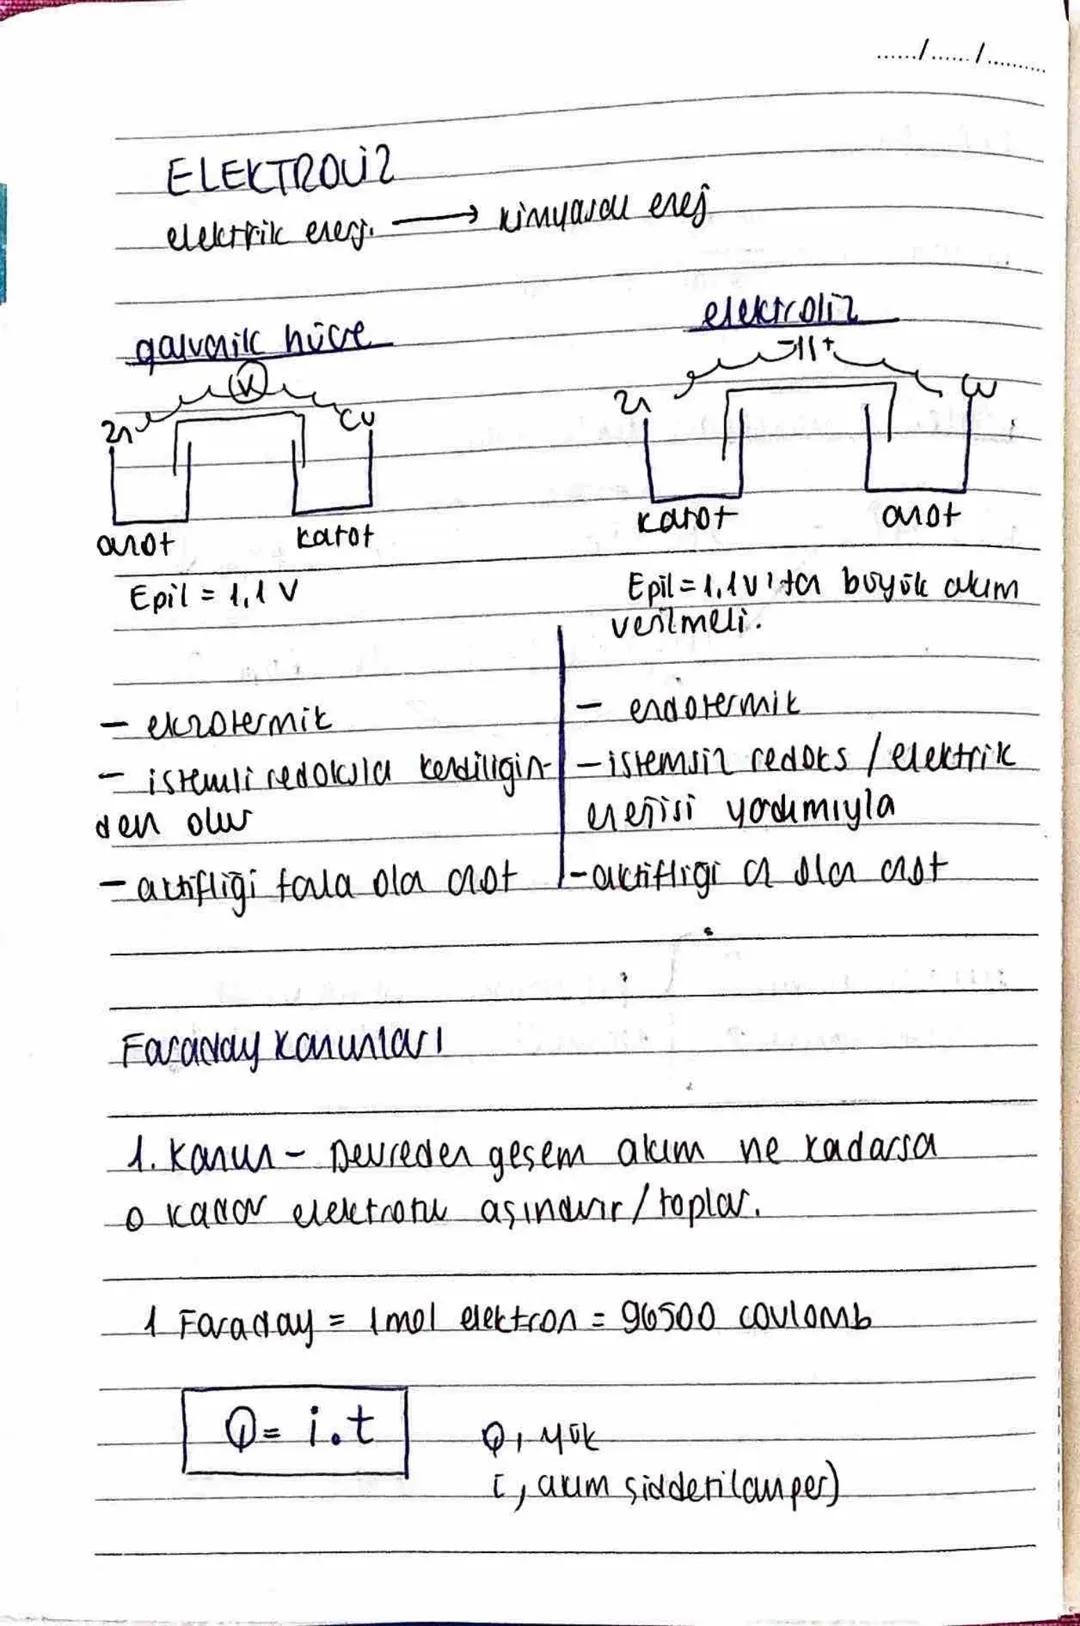 ....../....../..........
ELEKTROLİZ
elektrik enerji. → kimyasal enej
galvanik hücre
elektroliz
V
- +
Zn
Cu
Zn
Cu
anot
katot
katot
anot
Epil = 1,1 V
Epil = 1,1 V'tan büyük akım
verilmeli.
- ekzotermik
- endotermik
- istemli redoksla kendiliğin-
den olur
- istemsiz redoks / elektrik
enerjisi yardımıyla
- aktifliği fazla olan anot
- aktifliği az olan anot
Faraday Kanunları
1. Kanun - Devreden geçem akım ne kadarsa
o kadar elektrotu aşındırır / toplar.
1 Faraday = 1mol elektron = 96500 coulomb
Q = i.t
Q, yük
i, akım şiddeti(amper)